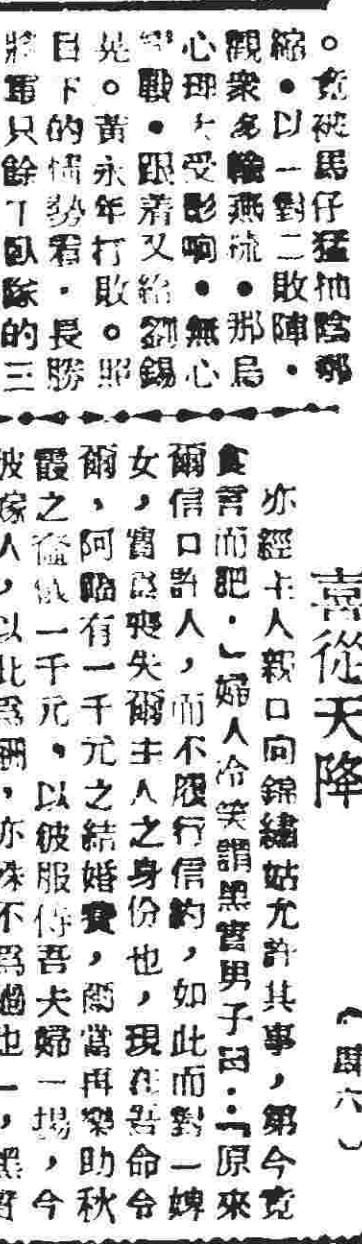 。竟被馬仔猛抽陰
縮。以一對二敗陣。
觀衆爲輸燕梳。那烏
心理大受影响。無心
戰。跟着又給劉錫
晃。黃永年打敗。照
目下的情勢看。長勝
將軍只餘下臥隊的三
喜從天降
(周六)
亦經主人親口向錦繡姑允許其事，第今竟
食言而肥。」婦人冷笑謂黑實男子曰：「原來
爾信口許人，而不履行信約，如此而對一婢
女，實爲喪失爾主人之身份也，現在吾命令
爾，阿臨有一千元之結婚費，爾當再幫助秋
霞之奩儀一千元，以彼服侍吾夫婦一場，今
彼嫁人，以此爲酬，亦殊不爲過也」，黑實